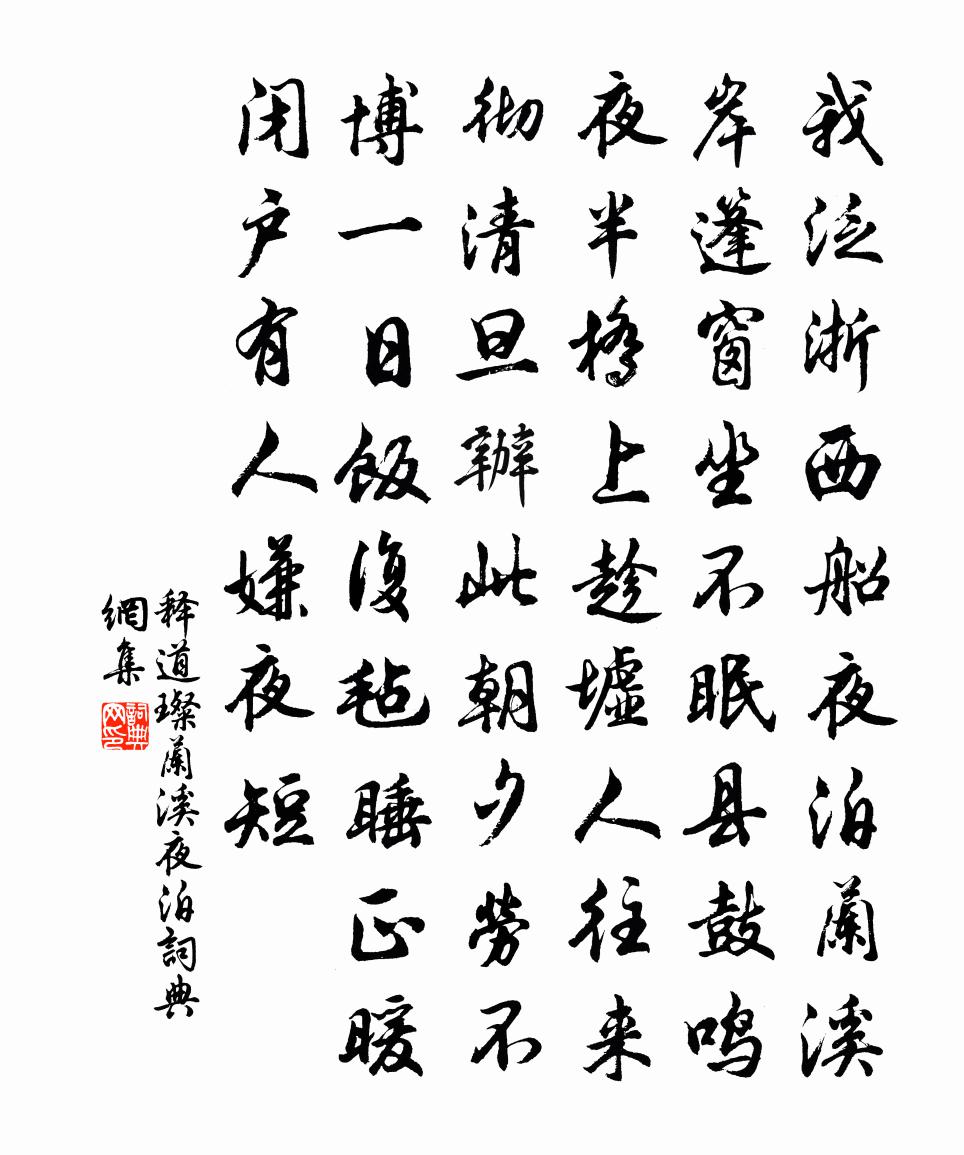 我泛浙西船夜泊蘭溪
岸蓬窗坐不眠县鼓鸣
夜半橋上趁墟人往来
彻清旦辦此朝夕勞不
博一日飯復毡睡正暖
闭户有人嫌夜短
释道璨蘭溪夜泊詞典
網集
詞典
网印